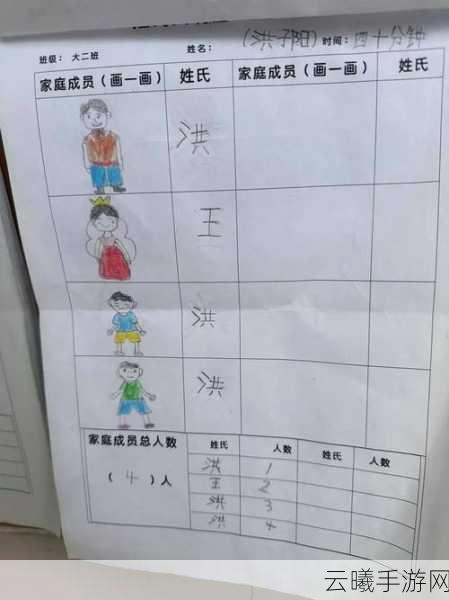 班级： 大二班 姓名： （洪子阳） 时间：四十分钟
家庭成员（画一画） 姓氏 家庭成员（画一画） 姓氏
洪
王
洪
洪
家庭成员总人数
（ 4 ）人
姓氏 人数 姓氏 人数
洪 1
王 2
洪 3
洪 4
云曦手游网